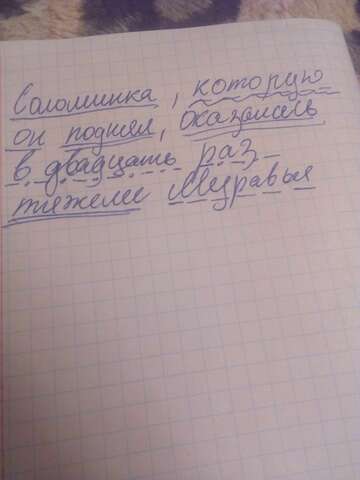 Соломинка, которую
он поднял, оказалась
в двадцать раз
тяжелее Муравья